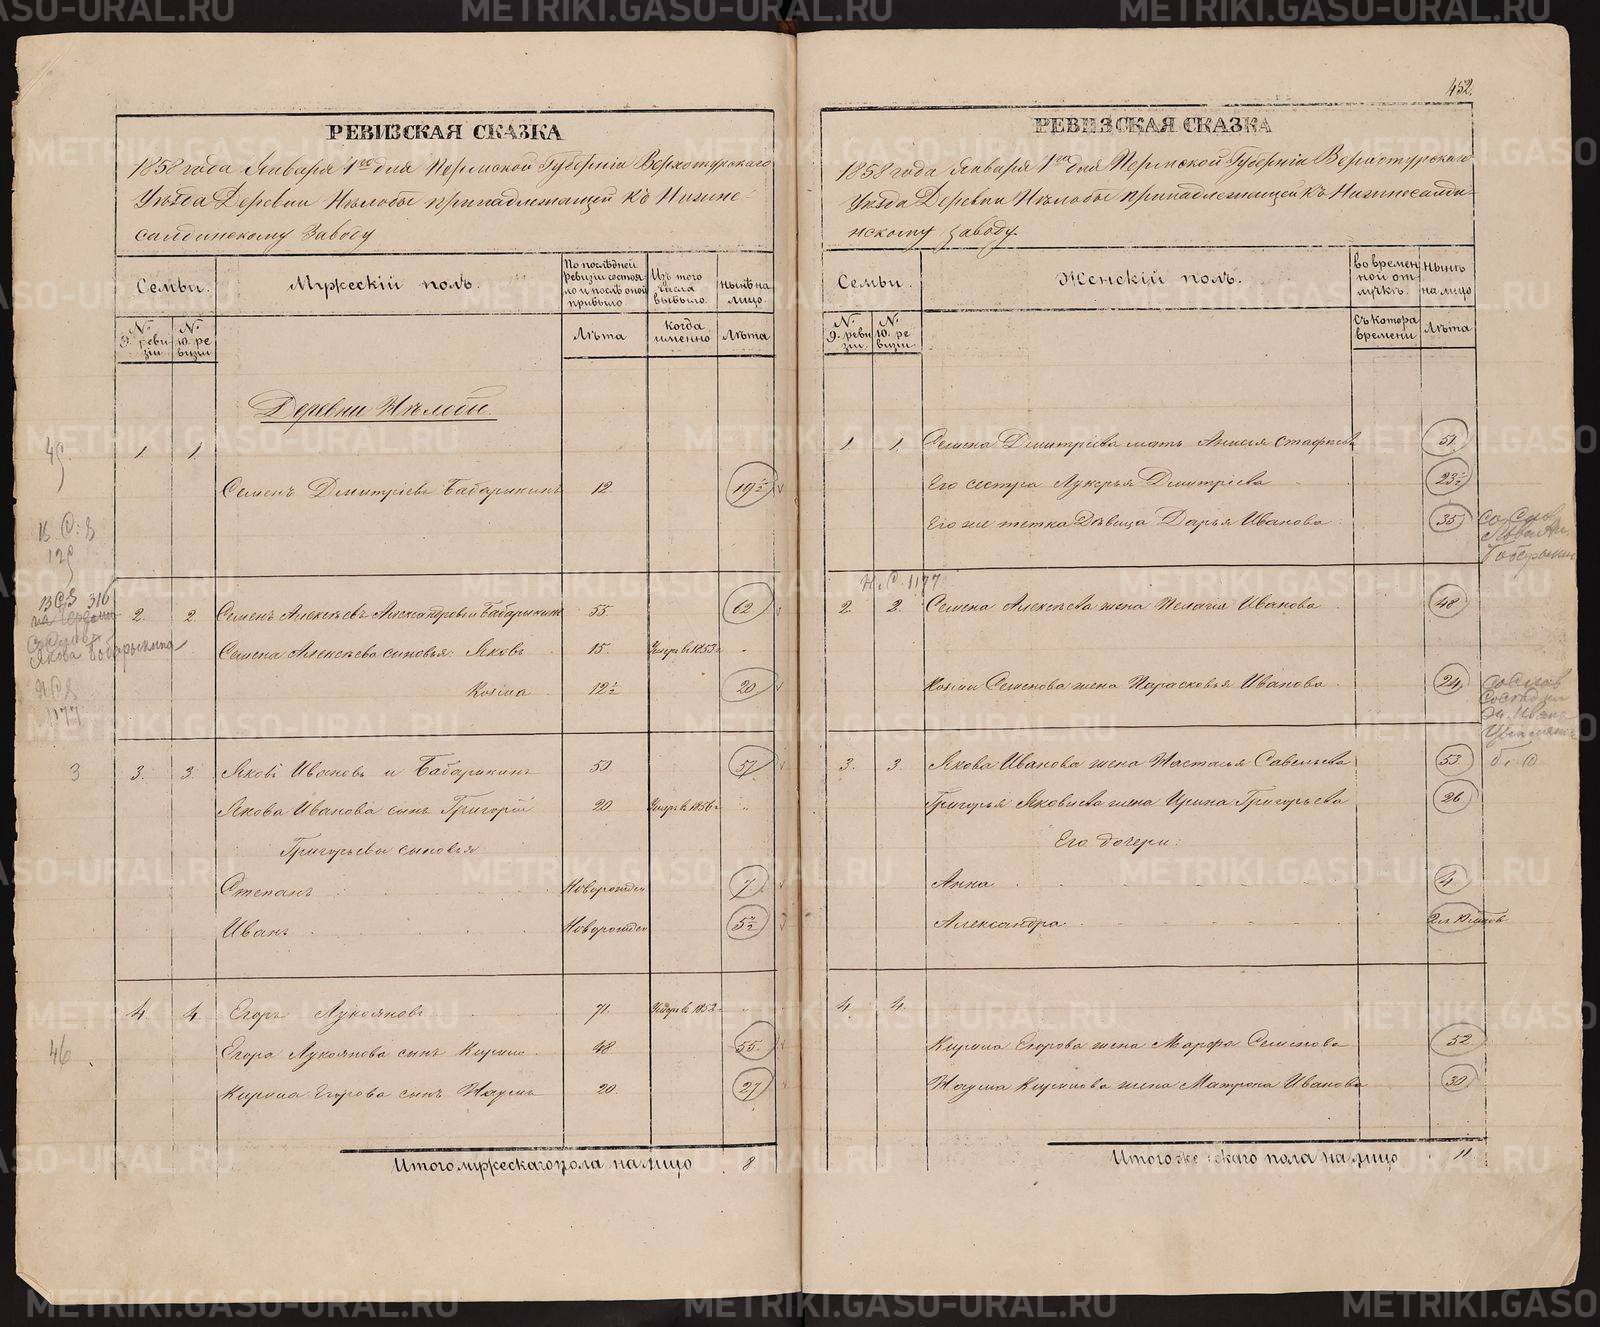 452.
РЕВИЗСКАЯ СКАЗКА
1858 года Января 1го дня Пермской Губерніи Верхотурскаго
Уѣзда Деревни Нѣлобы принадлежащей къ Нижне-
салдинскому Заводу
Семьи.
№ 9. ревизіи
№ 10. ревизіи
Мужескій полъ.
По послѣдней ревизіи состояло и послѣ оной прибыло
Лѣта
Изъ того числа выбыло.
Когда именно
нынѣ на лицо.
Лѣта
Деревни Нѣлобы.
1 1
Семенъ Дмитріевъ Бабарикинъ 12 19½
2. 2. Семенъ Алексѣевъ Бабарыкинъ 55 62
Семена Алексѣева сыновья: Яковъ 15. Умеръ въ 1853 г.
Козма 12½ 20
3. 3. Яковъ Ивановъ и Бабарикинъ 53 57
Якова Иванова сынъ Григорій 20 Умеръ въ 1856 г.
Григорьевы сыновья
Степанъ Новорожден 7
Иванъ Новорожден 5½
4. 4. Егоръ Лукояновъ 71
Егора Лукоянова сынъ Кирило 48 55.
Кирила Егорова сынъ Наумъ 20. 27
Итого мужескаго пола на лицо 8
45
В. С. З
125
ВСЗ 316
Якова Бобарыкина
1177
3
46
РЕВИЗСКАЯ СКАЗКА
1858 года Января 1го дня Пермской Губерніи Верхотурскаго
Уѣзда Деревни Нѣлобы принадлежащей къ Нижнесалди-
нскому заводу.
Семьи.
№ 9. ревизіи.
№ 10. ревизіи.
Женскій полъ.
во временной отлучкѣ.
Съ котора времени
нынѣ на лицо
Лѣта
1 1. Семена Дмитріева мать Анисья 51.
Его сестра Лукерья Дмитріева 23½
Его же тетка Дѣвица Дарья Иванова 35
Н. С. 1177
2 2. Семена Алексѣева жена Пелагія Иванова 48
Козмы Семенова жена Парасковья Иванова 24
3. 3. Якова Иванова жена Настасья Савельева 53
Григорья Яковлева жена Ирина Григорьева 26
Его дочери:
Анна 4.
Александра
4. 4.
Кирила Егорова жена Марфа Семенова 52
Наума Кирилова жена Матрона Иванова 30
Итого женскаго пола на лицо 11
METRIKI.GASO-URAL.RU